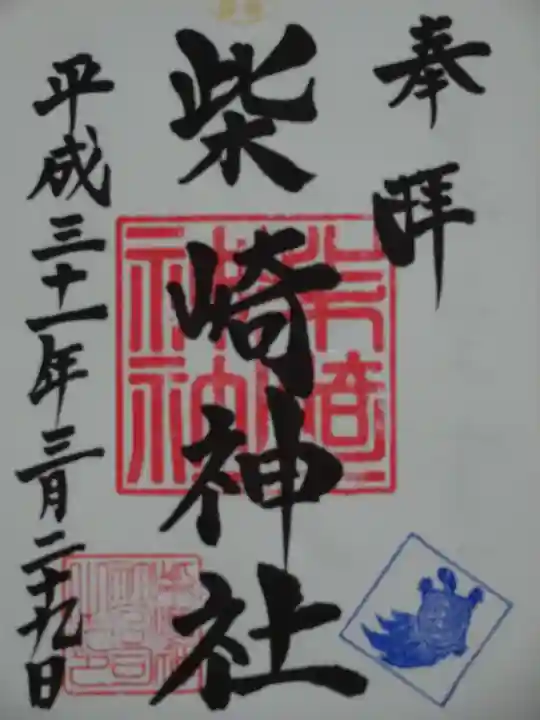 奉拜
柴崎神社
平成三十一年三月二十九日
柴崎神社